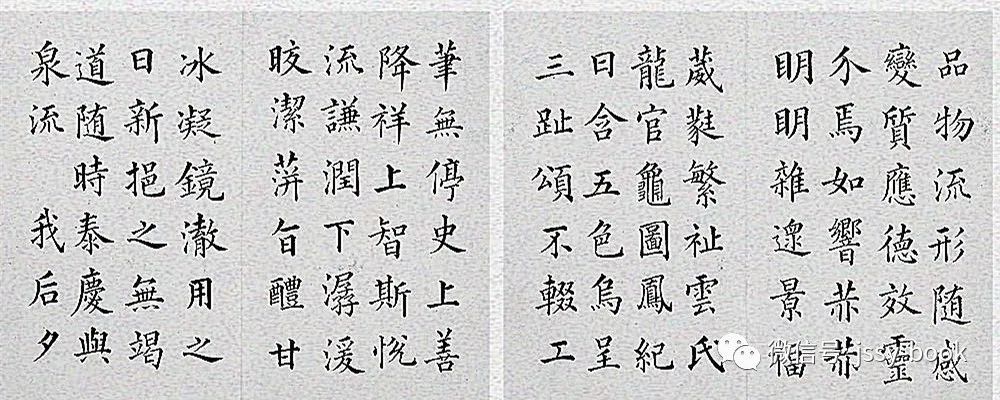 品物流形随感
變質應德效靈
介焉如響赫赫
明明雜遝景福
葳蕤繁祉雲氏
龍官龜圖鳳紀
日含五色烏呈
三趾頌不輟工
筆無停史上善
降祥上智斯悅
流謙潤下潺湲
皎潔蓱旨醴甘
冰凝鏡澈用之
日新挹之無竭
道随時泰慶與
泉流 我后夕
微信号: jssy-book